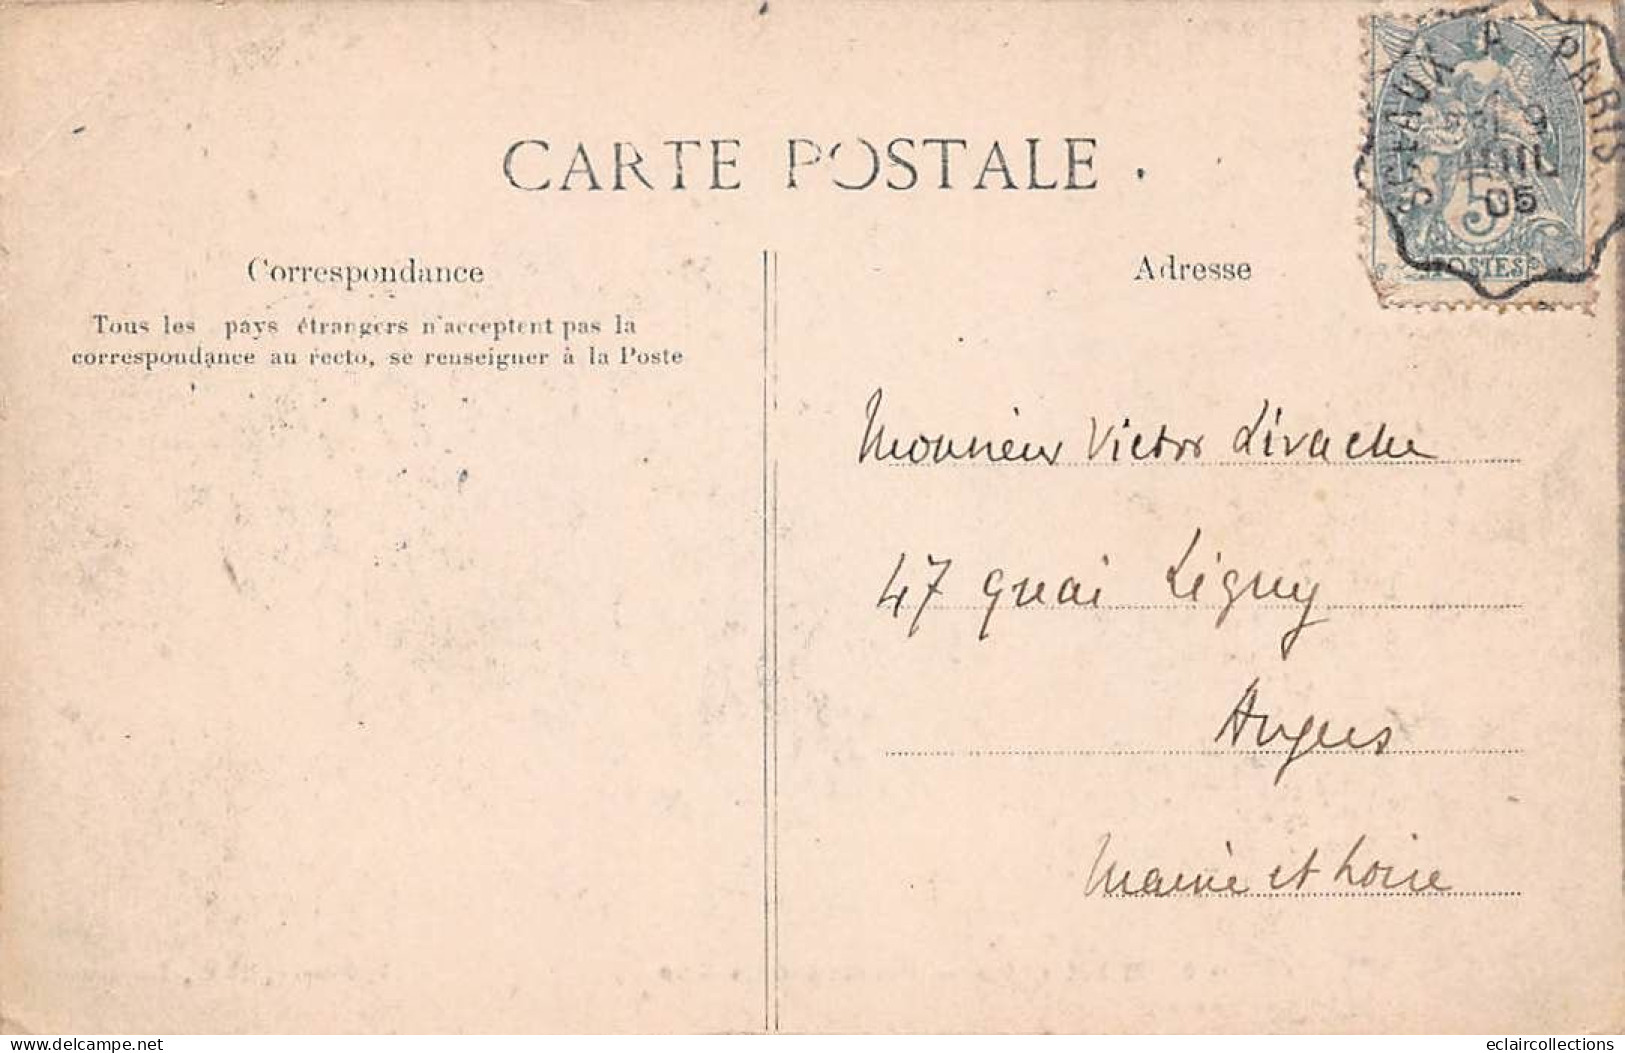 CARTE POSTALE
SCEAUX A PARIS
05
5
POSTES
Correspondance
Adresse
Tous les pays étrangers n'acceptent pas la
correspondance au recto, se renseigner à la Poste
Monsieur Victor Livache
47 quai Ligny
Angers
Maine et Loire
delcampe.net
eclaircollections